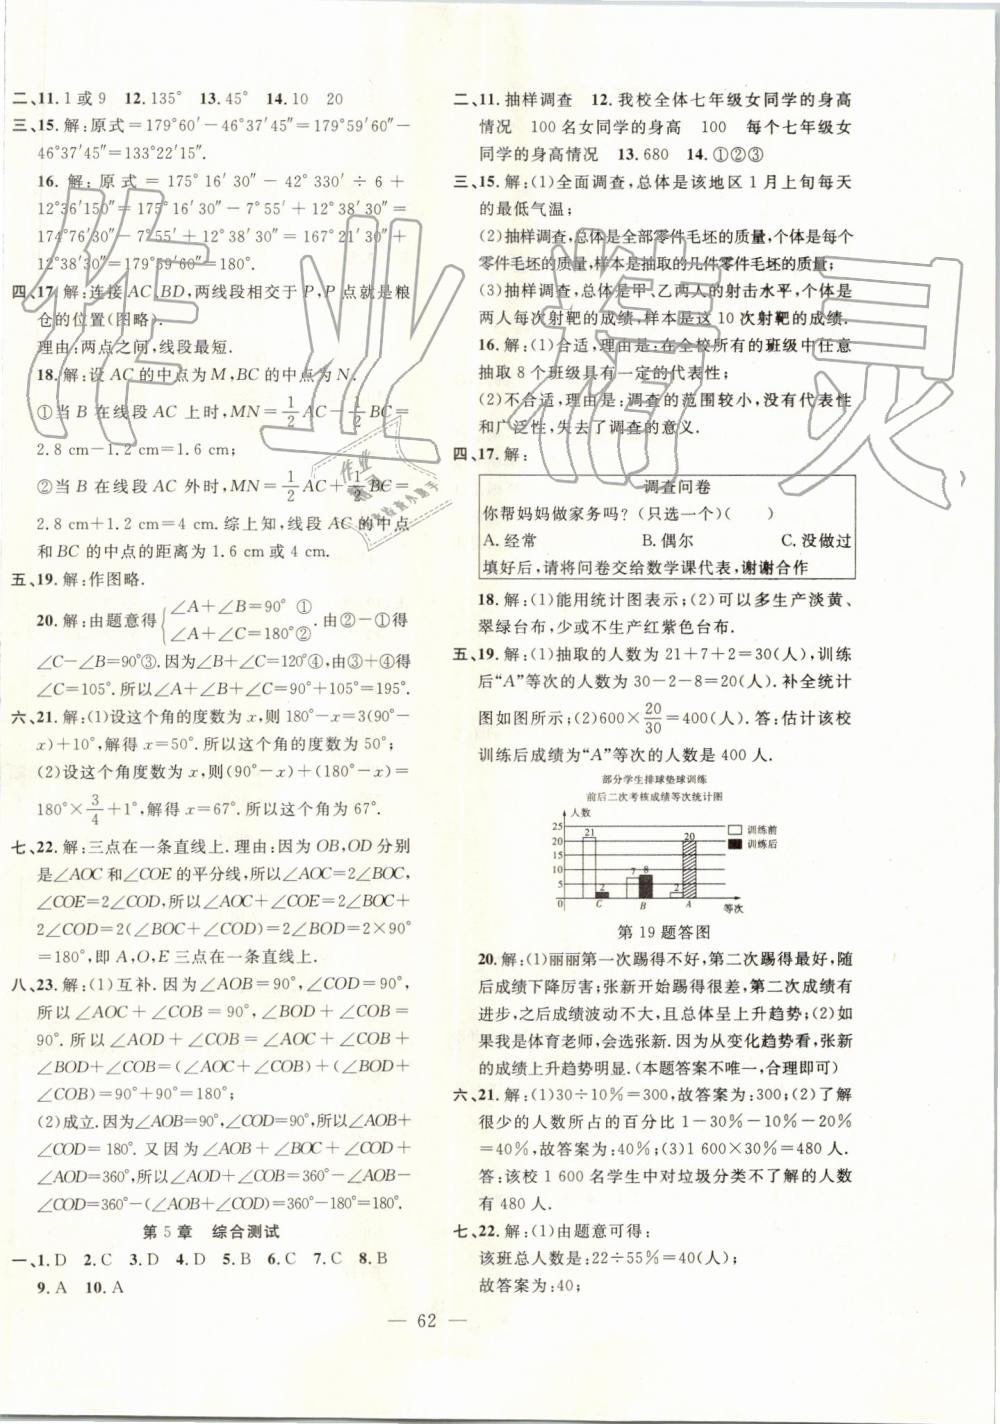 二、11.1 或 9　12.135°　13.45°　14.10　20
三、15.解:原式=179°60′-46°37′45″=179°59′60″-
46°37′45″=133°22′15″.
16. 解:原式=175°16′30″-42°330′÷6+
12°36′150″=175°16′30″-7°55′+12°38′30″=
174°76′30″-7°55′+12°38′30″=167°21′30″+
12°38′30″=179°59′60″=180°.
四、17.解:连接 AC,BD,两线段相交于 P,P 点就是粮
仓的位置(图略).
理由:两点之间,线段最短.
18.解:设 AC 的中点为 M,BC 的中点为 N.
①当 B 在线段 AC 上时,MN=1/2AC-1/2BC=
2.8 cm-1.2 cm=1.6 cm.
②当 B 在线段 AC 外时,MN=1/2AC+1/2BC=
2.8 cm+1.2 cm=4 cm.综上知,线段 AC 的中点
和 BC 的中点的距离为 1.6 cm 或 4 cm.
五、19.解:作图略.
20.解:由题意得{∠A+∠B=90° ①
∠A+∠C=180°②. 由②-①得
∠C-∠B=90°③.因为∠B+∠C=120°④,由③+④得
∠C=105°.所以∠A+∠B+∠C=90°+105°=195°.
六、21.解:(1)设这个角的度数为 x,则 180°-x=3(90°-
x)+10°,解得 x=50°.所以这个角的度数为 50°;
(2)设这个角度数为 x,则(90°-x)+(180°-x)=
180°×3/4+1°,解得 x=67°.所以这个角为 67°.
七、22.解:三点在一条直线上.理由:因为 OB,OD 分别
是∠AOC 和∠COE 的平分线,所以∠AOC=2∠BOC,
∠COE=2∠COD,所以∠AOC+∠COE=2∠BOC+
2∠COD=2(∠BOC+∠COD)=2∠BOD=2×90°
=180°,即 A,O,E 三点在一条直线上.
八、23.解:(1)互补.因为∠AOB=90°,∠COD=90°,
所以∠AOC+∠COB=90°,∠BOD+∠COB=
90°.所以∠AOD+∠COB=∠AOC+∠COB+
∠BOD+∠COB=(∠AOC+∠COB)+(∠BOD
+∠COB)=90°+90°=180°;
(2)成立.因为∠AOB=90°,∠COD=90°,所以∠AOB+
∠COD=180°.又因为∠AOB+∠BOC+∠COD+
∠AOD=360°,所以∠AOD+∠COB=360°-∠AOB-
∠COD=360°-(∠AOB+∠COD)=360°-180°=180°.
第 5 章　综合测试
一、1.D　2.C　3.D　4.D　5.B　6.C　7.C　8.B
9.A　10.A
二、11.抽样调查　12.我校全体七年级女同学的身高
情况　100 名女同学的身高　100　每个七年级女
同学的身高情况　13.680　14.①②③
三、15.解:(1)全面调查,总体是该地区 1 月上旬每天
的最低气温;
(2)抽样调查,总体是全部零件毛坯的质量,个体是每个
零件毛坯的质量,样本是抽取的几件零件毛坯的质量;
(3)抽样调查,总体是甲、乙两人的射击水平,个体是
两人每次射靶的成绩,样本是这 10 次射靶的成绩.
16.解:(1)合适,理由是:在全校所有的班级中任意
抽取 8 个班级具有一定的代表性;
(2)不合适,理由是:调查的范围较小,没有代表性
和广泛性,失去了调查的意义.
四、17.解:
调查问卷
你帮妈妈做家务吗?(只选一个)(　　)
A.经常　B.偶尔　C.没做过
填好后,请将问卷交给数学课代表,谢谢合作
18.解:(1)能用统计图表示;(2)可以多生产淡黄、
翠绿台布,少或不生产红紫色台布.
五、19.解:(1)抽取的人数为 21+7+2=30(人),训练
后“A”等次的人数为 30-2-8=20(人).补全统计
图如图所示;(2)600×20/30=400(人).答:估计该校
训练后成绩为“A”等次的人数是 400 人.
部分学生排球垫球训练
前后二次考核成绩等次统计图
人数
25
20
15
10
5
0
21　2　7　8　2　20
C　B　A　等次
训练前
训练后
第 19 题答图
20.解:(1)丽丽第一次踢得不好,第二次踢得最好,随
后成绩下降厉害;张新开始踢得很差,第二次成绩有
进步,之后成绩波动不大,且总体呈上升趋势;(2)如
果我是体育老师,会选张新.因为从变化趋势看,张新
的成绩上升趋势明显.(本题答案不唯一,合理即可)
六、21.解:(1)30÷10%=300,故答案为:300;(2)了解
很少的人数所占的百分比 1-30%-10%-20%
=40%,故答案为:40%;(3)1 600×30%=480 人.
答:该校 1 600 名学生中对垃圾分类不了解的人数
有 480 人.
七、22.解:(1)由题意可得:
该班总人数是:22÷55%=40(人);
故答案为:40;
— 62 —
作业精灵